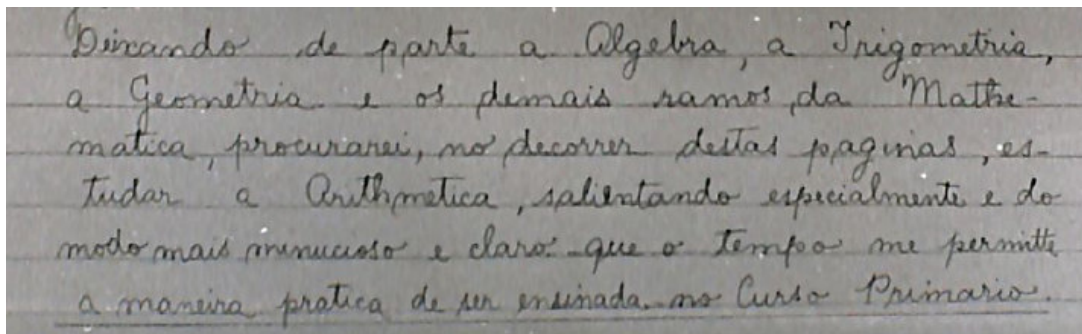 Deixando de parte a Algebra, a Trigometria,
a Geometria e os demais ramos da Mathe-
matica, procurarei, no decorrer destas paginas, es-
tudar a Arithmetica, salientando especialmente e do
modo mais minucioso e claro que o tempo me permitte
a maneira pratica de ser ensinada no Curso Primario.